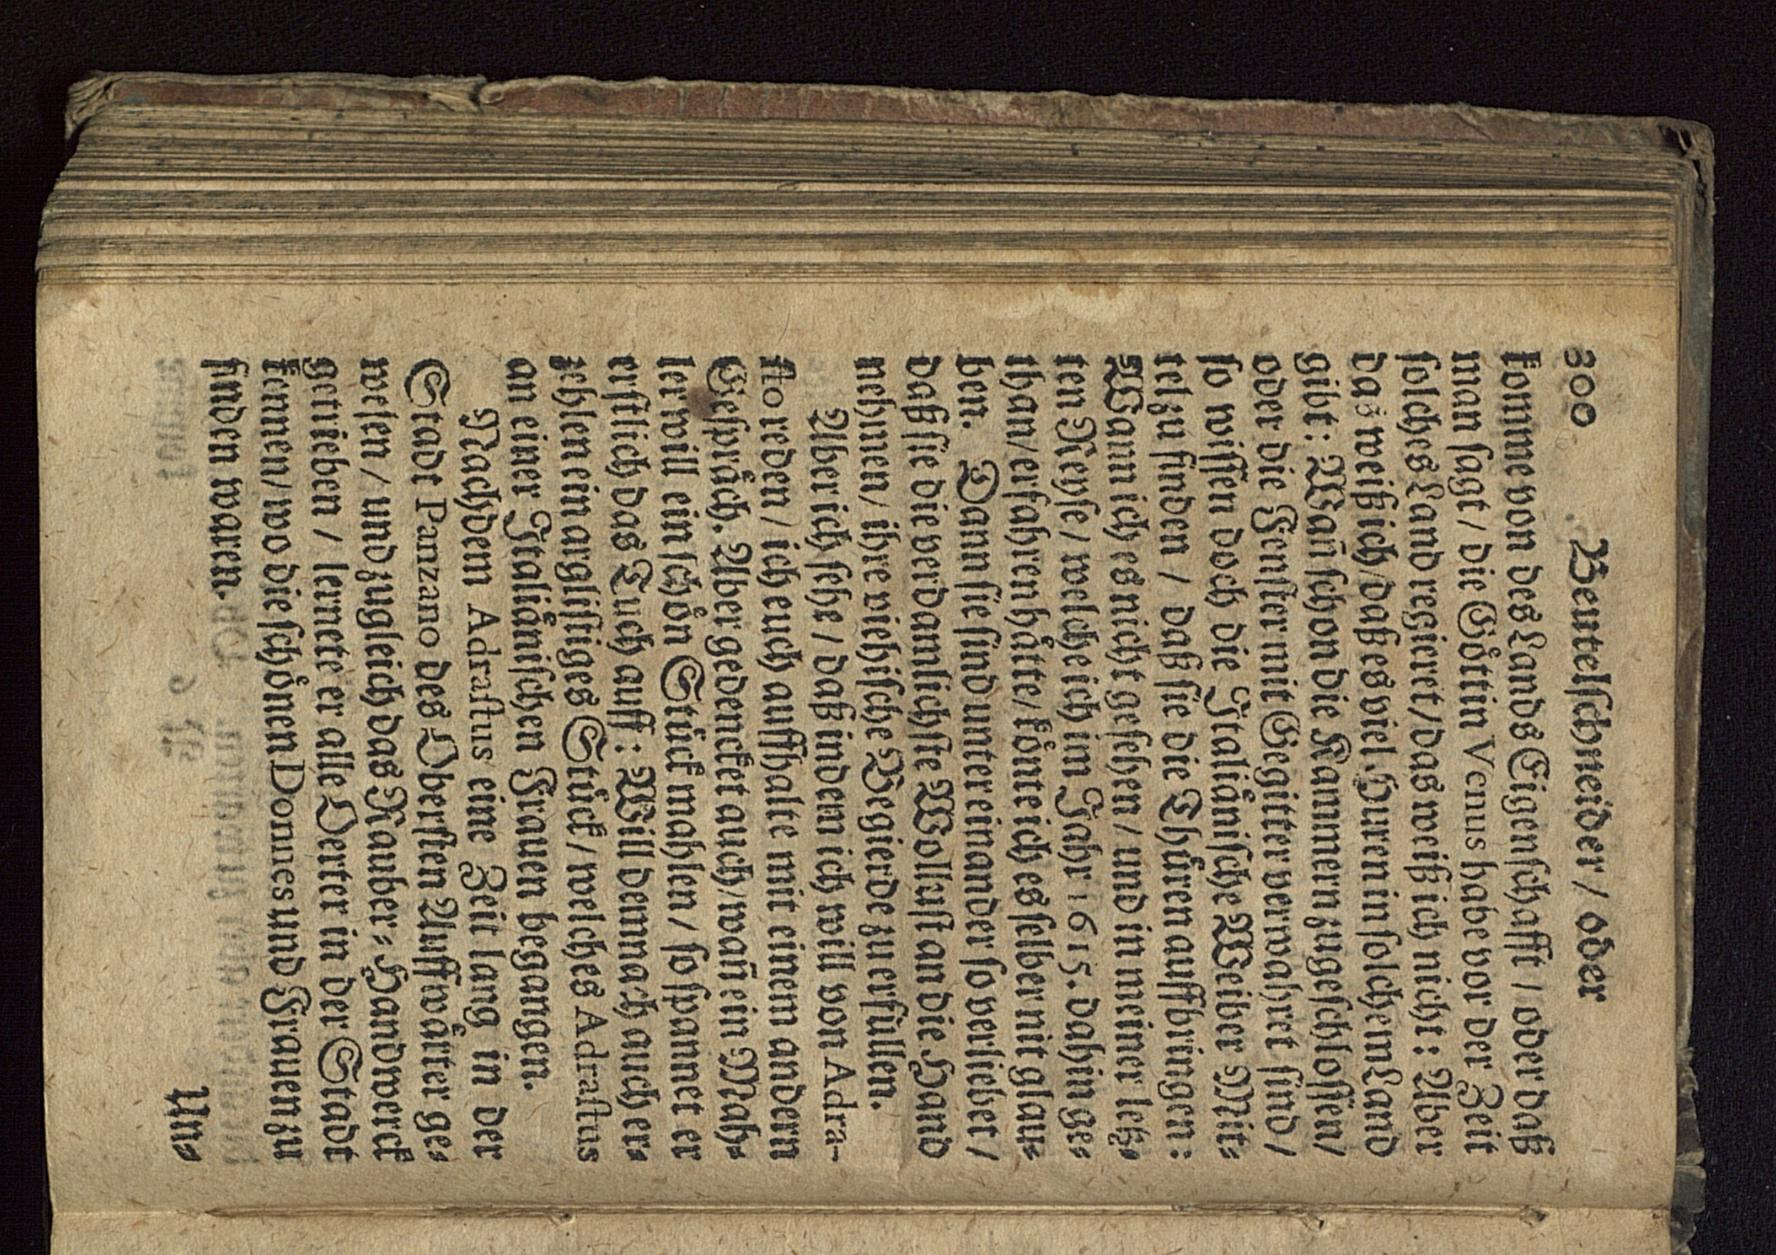 300 Beutelschneider / oder
komme von des Lands Eigenschafft / oder daß
man sagt / die Göttin Venus habe vor der Zeit
solches Land regieret / das weiß ich nicht : Aber
das weiß ich / daß es viel Huren in solchem Land
gibt : Wañ schon die Kammern zugeschlossen /
oder die Fenster mit Gegitter verwahret sind /
so wissen doch die Italiänische Weiber Mit-
tel zu finden / daß sie die Thüren auffbringen :
Wann ich es nicht gesehen / und in meiner letz-
ten Reyse / welche ich im Jahr 1615. dahin ge-
than / erfahren hätte / könte ich es selber nit glau-
ben. Dann sie sind untereinander so verliebet /
daß sie die verdamlichste Wollust an die Hand
nehmen / ihre viehische Begierde zu erfüllen.
Aber ich sehe / daß indem ich will von Adra-
sto reden / ich euch auffhalte mit einem andern
Gespräch. Aber gedencket auch / wañ ein Mah-
ler will ein schön Stück mahlen / so spannet er
erstlich das Tuch auff : Will demnach auch er-
zehlen ein arglistiges Stück / welches Adrastus
an einer Italiänischen Frauen begangen.
Nachdem Adrastus eine Zeit lang in der
Stadt Panzano des Obersten Auffwärter ge-
wesen / und zugleich das Rauber-Handwerck
getrieben / lernete er alle Oerter in der Stadt
kennen / wo die schönen Donnes und Frauen zu
finden waren.
Un-